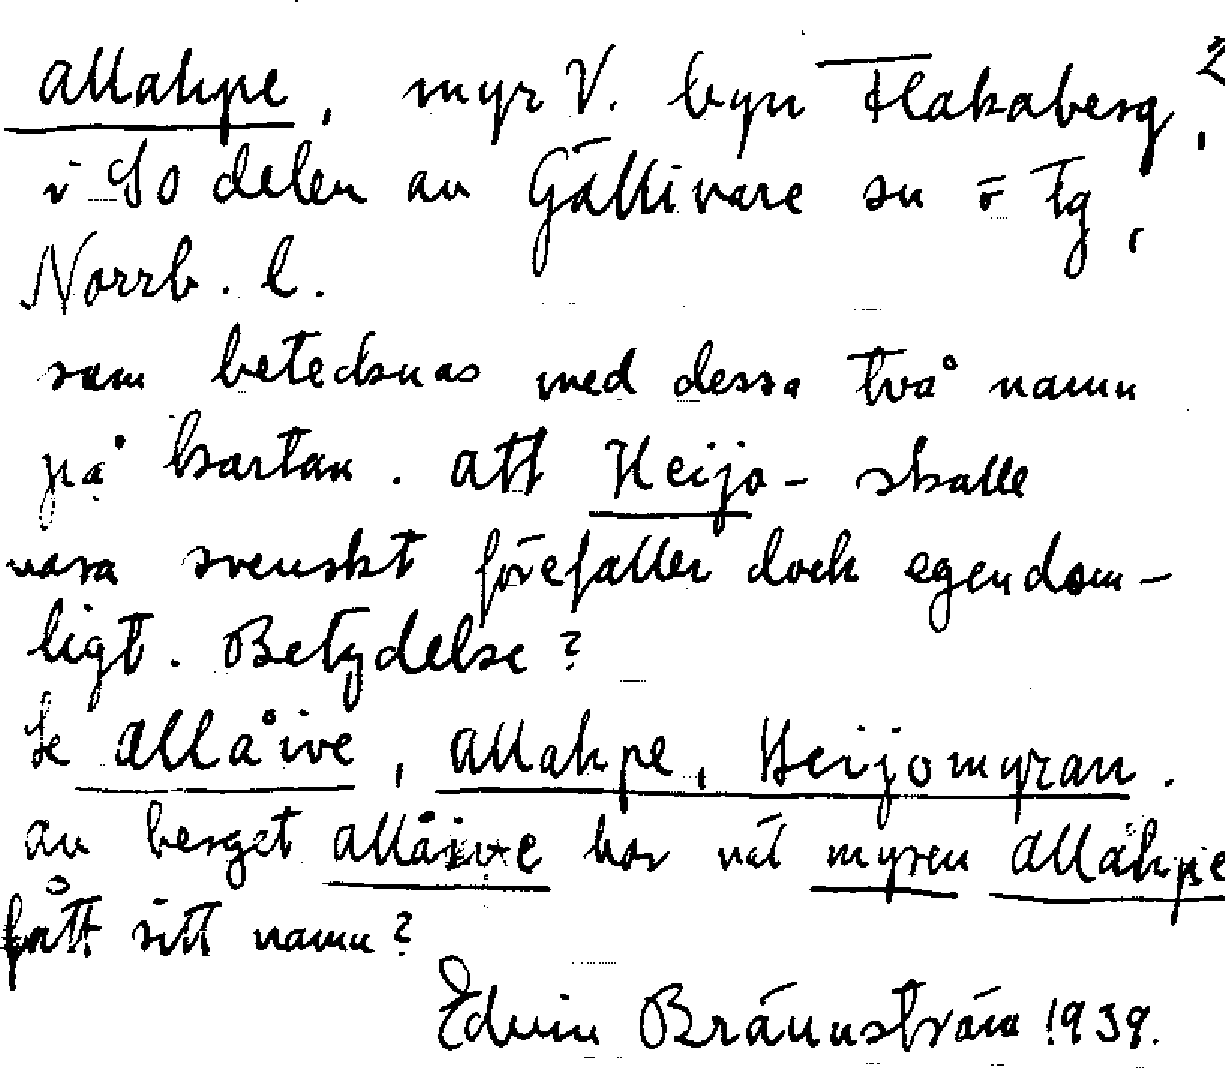 Allahpe, myr V. byn Flakaberg, 2
i SO delen av Gällivare sn o tg,
Norrb. l.
som betecknas med dessa två namn
på kartan. Att Heijo- skulle
vara svenskt förefaller dock egendom-
ligt. Betydelse?
Se Allåive, Allahpe, Heijomyran.
Av berget Allåive har väl myren Allahpe
fått sitt namn?
Edvin Brännström 1939.